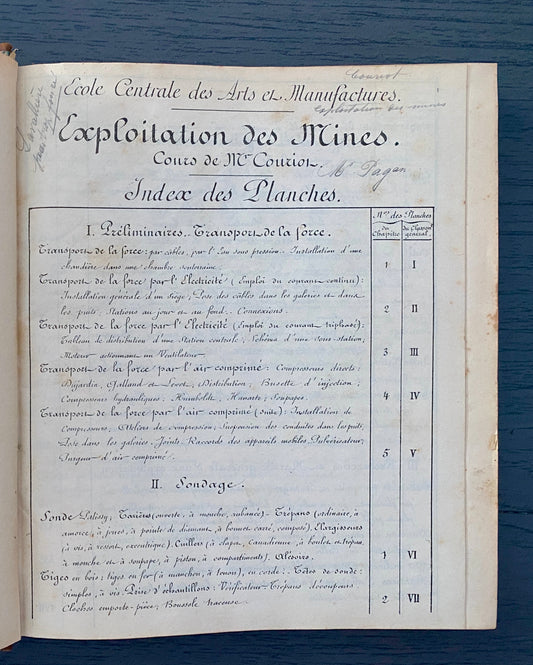 Ecole Centrale des Arts et Manufactures.
Couriot
exploitation des mines
Exploitation des Mines.
Cours de Mr Couriot.
Mr Pagan
Index des Planches.
Nos des Planches
du Chapitre
de Classemt général.
I. Préliminaires. Transport de la force.
Transport de la force: par câbles, par l'Eau sous pression. Installation d'une
chaudière dans une chambre souterraine;
1 I
Transport de la force par l'Electricité (Emploi du courant continu):
Installation générale d'un Siège; Pose des câbles dans les galeries et dans
les puits; Stations au jour et au fond. Connexions.
2 II
Transport de la force par l'Electricité (Emploi du courant triphasé):
Tableau de distribution d'une Station centrale; Schéma d'une Sous-station;
Moteur actionnant un Ventilateur.
3 III
Transport de la force par l'air comprimé: Compresseurs directs:
Dujardin, Galland et Sevet; Distribution; Busette d'injection;
Compresseurs hydrauliques: Humboldt, Hanarte; Soupapes.
4 IV
Transport de la force par l'air comprimé (suite): Installation de
Compresseurs, Ateliers de compression; Suspension des conduites dans les puits;
Pose dans les galeries. Joints. Raccords des appareils mobiles. Pulvérisateur;
Purgeur d'air comprimé.
5 V
II. Sondage.
Sonde Palissy; Tarières (ouverte, à mouche, rubanée). Trépans (ordinaire, à
amorce, à joues, à pointe de diamant, à bonnet carré, composé). Elargisseurs
(à vis, à ressort, excentrique). Cuillers (à clapet, Canadienne, à boulet et trépan,
à mouche et à soupape, à piston, à compartiments). Alésoirs.
1 VI
Tiges en bois; tiges en fer (à manchon, à tenon), en corde. Têtes de sonde:
simples, à vis. Prise d'échantillons: Vérificateur. Trépans découpeurs.
Cloches emporte-pièce; Boussole traceuse.
2 VII